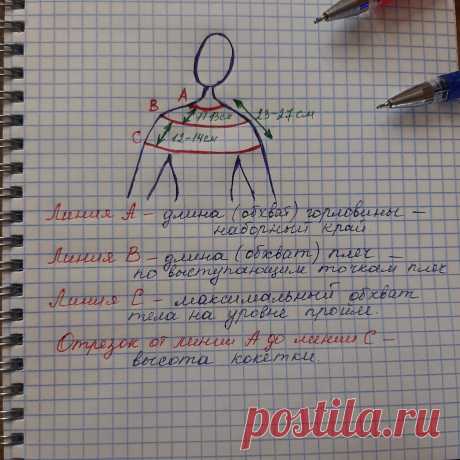 A
B
11-13см
23-27см
C
12-14см
Линия А – длина (обхват) горловины –
наборный край
Линия В – длина (обхват) плеч –
по выступающим точкам плеч
Линия С – максимальный обхват
тела на уровне пройм.
Отрезок от линии А до линии С –
высота кокетки.
postila.ru